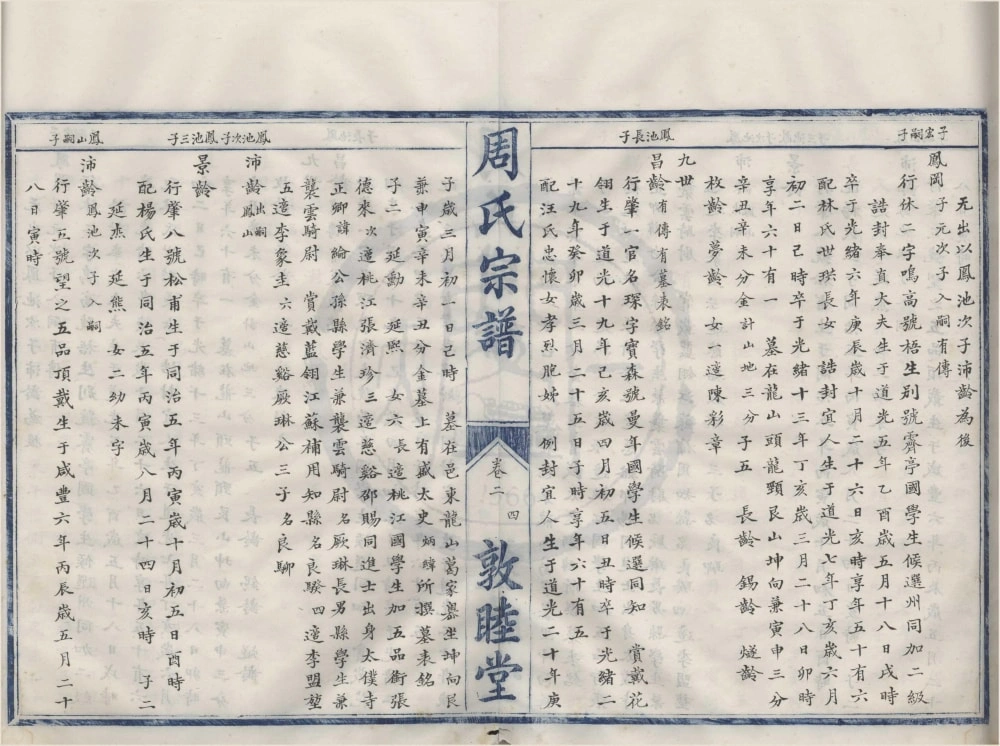 子宏嗣子
鳳池長子
无出以鳳池次子沛齡為後
鳳岡子元次子入嗣有傳
行休二字鳴高號梧生别號霽亭國學生候選州同加二級
誥封奉直大夫生于道光五年乙酉歲五月十八日戌時
卒于光緒六年庚辰歲十月二十六日亥時享年五十有六
配林氏世珙長女 誥封宜人生于道光七年丁亥歲六月
初二日己時卒于光緒十三年丁亥歲三月二十八日卯時
享年六十有一 墓在龍山頭龍顆艮山坤向兼寅申三分
辛丑辛未分金計山地三分子五 長齡 錫齡 燧齡
枚齡 夢齡 女一適陳彩章
九世
昌齡有傳有墓表銘
行肇一官名琛字寶森號曼年國學生候選同知 賞戴花
翎生于道光十九年己亥歲四月初五日丑時卒于光緒二
十九年癸卯歲三月二十五日子時享年六十有五
配汪氏忠懷女孝烈胞姊 例封宜人生于道光二十年庚
周氏宗譜
卷二
四
敦睦堂
鳳池次子 鳳池三子
鳳山嗣子
子歲三月初一日己時 墓在邑東龍山葛家嶴坐坤向艮
兼申寅辛未辛丑分金墓上有盛太史炳緯所撰墓表銘
子二 延勳 延熙 女六長適桃江國學生加五品銜張
德來次適桃江張濟珍三適慈谿邵賜同進士出身太僕寺
正卿諱綸公孫縣學生兼襲雲騎尉名厥琳長男縣學生兼
襲雲騎尉 賞戴藍翎江蘇補用知縣名良騤四適李盟堃
五適李象圭六適慈谿厥琳公三子名良聊
沛齡出嗣鳳山
景齡
行肇八號松甫生于同治五年丙寅歲十月初五日酉時
配楊氏生于同治五年丙寅歲八月二十四日亥時 子二
延燾 延熊 女二幼未字
沛齡鳳池次子入嗣
行肇五號望之五品頂戴生于咸豐六年丙辰歲五月二十
八日寅時